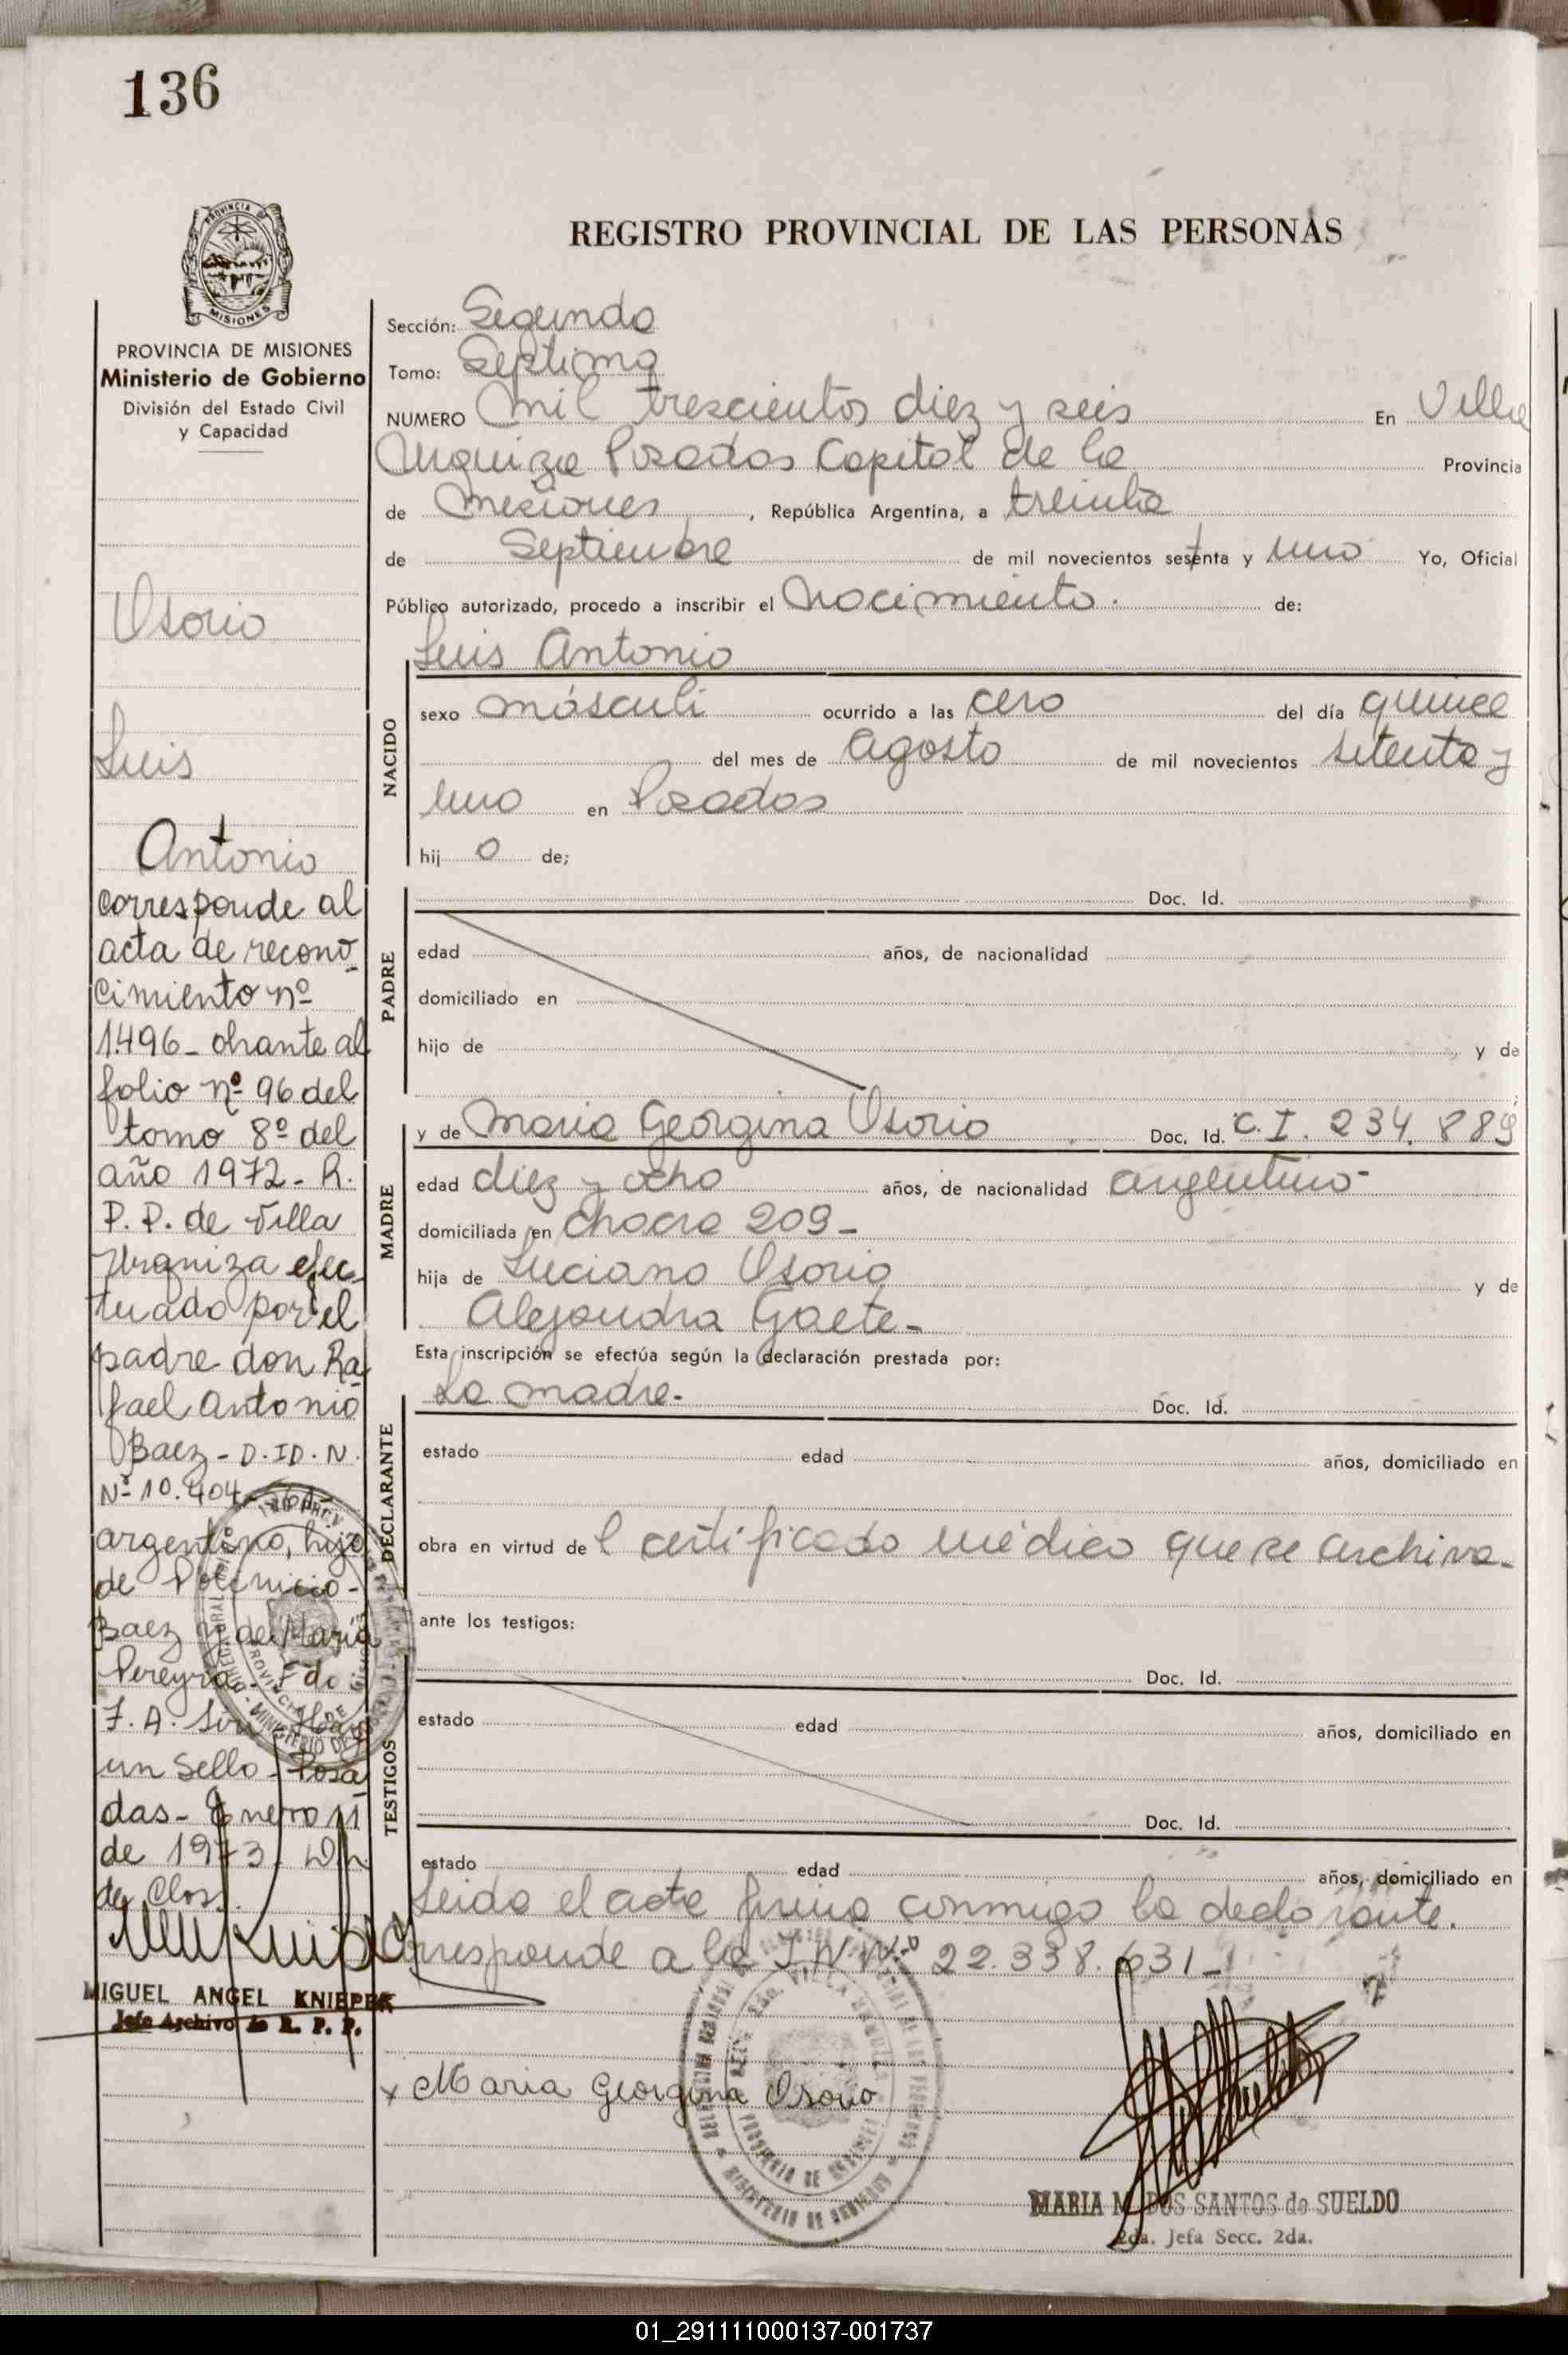 136
PROVINCIA DE
MISIONES
PROVINCIA DE MISIONES
Ministerio de Gobierno
División del Estado Civil
y Capacidad
Osorio
Luis
Antonio
corresponde al
acta de recono
cimiento nº
1496_ obrante al
folio nº 96 del
tomo 8º del
año 1972_ R.
P. P. de Villa
Urquiza efec_
tuado por el
padre don Ra
fael Antonio
Baez - D.ID.N.
Nº 10.404.
argentino, hijo
de
Baez y de Maria
Pereyra. Fdo:
F. A. Hay
un sello - Posa
das - Enero 11
de 1973.
MIGUEL ANGEL KNIEPER
Jefe Archivo de R. P. P.
REGISTRO PROVINCIAL DE LAS PERSONAS
Sección: Segunda
Tomo: Septimo
NUMERO mil trescientos diez y seis En Villa
Urquiza Posadas Capital de la Provincia
de Misiones, República Argentina, a treinta
de Septiembre de mil novecientos sesenta y uno Yo, Oficial
Público autorizado, procedo a inscribir el Nacimiento. de:
Luis Antonio
NACIDO
sexo másculi ocurrido a las cero del día quince
del mes de Agosto de mil novecientos setenta y
uno en Posadas
hij o de;
PADRE
Doc. Id.
edad años, de nacionalidad
domiciliado en
hijo de y de
MADRE
y de Maria Georgina Osorio Doc. Id. C.I. 234.889
edad diez y ocho años, de nacionalidad argentino-
domiciliada en chacra 209_
hija de Luciano Osorio y de
Alejandra Gaete_
Esta inscripción se efectúa según la declaración prestada por:
DECLARANTE
La madre. Doc. Id.
estado edad años, domiciliado en
obra en virtud de l certificado médico que se archiva_
ante los testigos:
TESTIGOS
Doc. Id.
estado edad años, domiciliado en
Doc. Id.
estado edad años, domiciliado en
Leida el acta firma conmigo la declarante.
Corresponde a la 22.338.631_
x Maria Georgina Osorio
MARIA M. DOS SANTOS de SUELDO
2da. Jefa Secc. 2da.
01_291111000137-001737